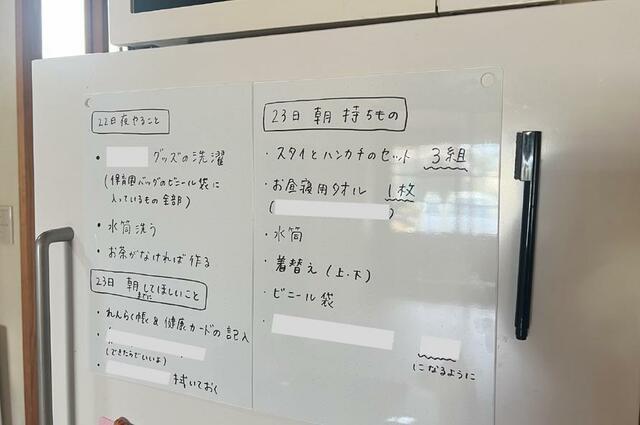 22日夜やること
・ グッズの洗濯
(保育園バッグのビニール袋に
入っているもの全部)
・水筒洗う
・お茶がなければ作る
23日 朝してほしいこと
までに
・れんらく帳&健康カードの記入
・
(できたらでいいよ)
・ 拭いておく
23日 朝 持ちもの
・スタイとハンカチのセット 3組
・お昼寝用タオル 1枚
( )
・水筒
・着替え(上・下)
・ビニール袋
・
になるように